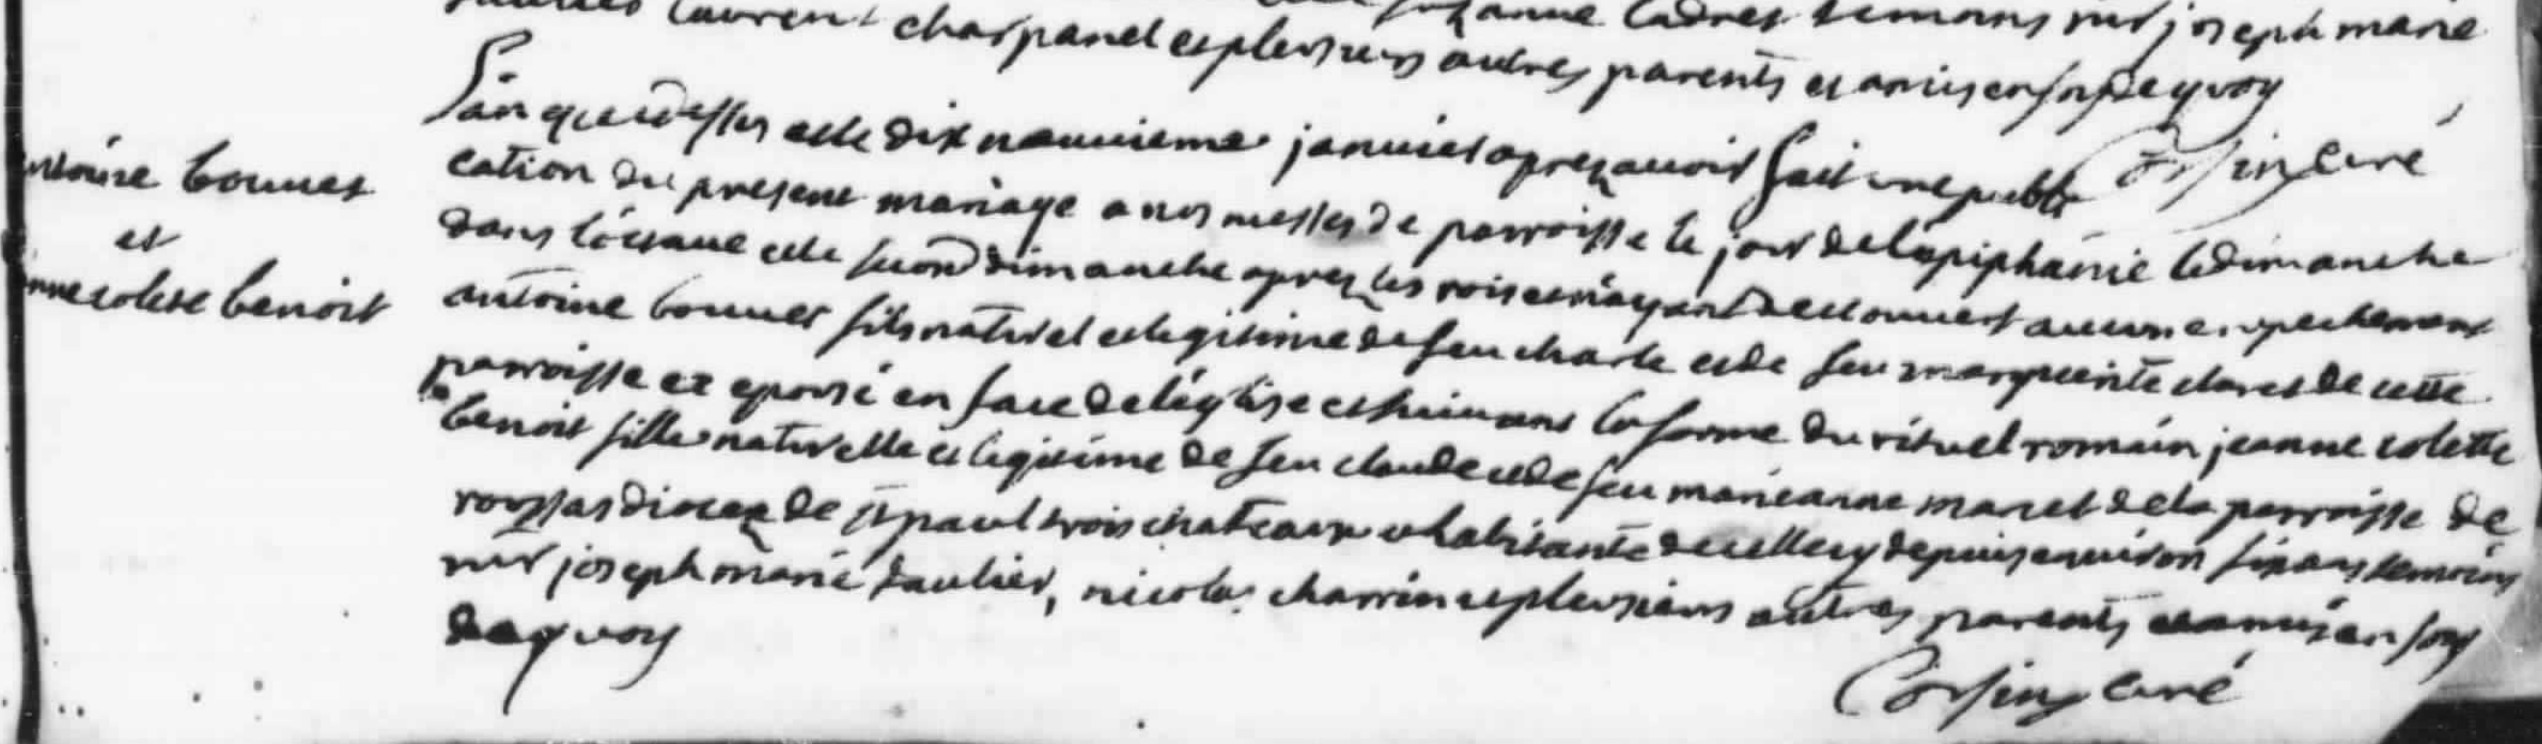 laurent charpanel et plusieurs autres parents et amis en foy de quoy
suzanne ladret temoins mr joseph marie
Corsin curé
antoine bouuet
et
jeanne colete benoit
L'an que dessus et le dix neuuieme januier aprez auoir fait une publi
cation du present mariage a nos messes de parroisse le jour de l'epiphanie le dimanche
dans l'octaue et le second dimanche aprez les rois et n'ayant decouuert aucun enpechement
antoine bouuet fils naturel et legitime de feu charle et de feu marguerite claret de cette
parroisse a epousé en face de l'eglise et suiuant la forme du rituel romain jeanne colette
benoit fille naturelle et legitime de feu claude et de feu marieanne manet de la parroisse de
roussas diocez de st paul trois chateaux et habitante de cellecy depuis enuiron six ans temoins
mr joseph marie daulier, nicolas charrin et plusieurs autres parents et amis en foy
de quoy
Corsin curé